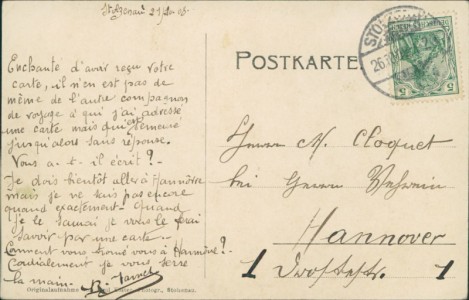 Stolzenau
Enchanté d'avoir reçu votre
carte, il n'en est pas de
même de l'autre compagnon
de voyage à qui j'ai adressé
une carte mais qui est demeuré
jusqu'alors sans réponse.
Vous a-t-il écrit?-
Je dois bientôt aller à Hannovre
mais je ne sais pas encore
quand exactement. Quand
je le saurai je vous le ferai
savoir par une carte.
Comment vous trouvez vous à Hannovre?
Cordialement je vous serre
la main.
POSTKARTE
Herrn M. Cloquet
bei Herrn
Hannover
1 1
5 5
Originalaufnahme Stolzenau.